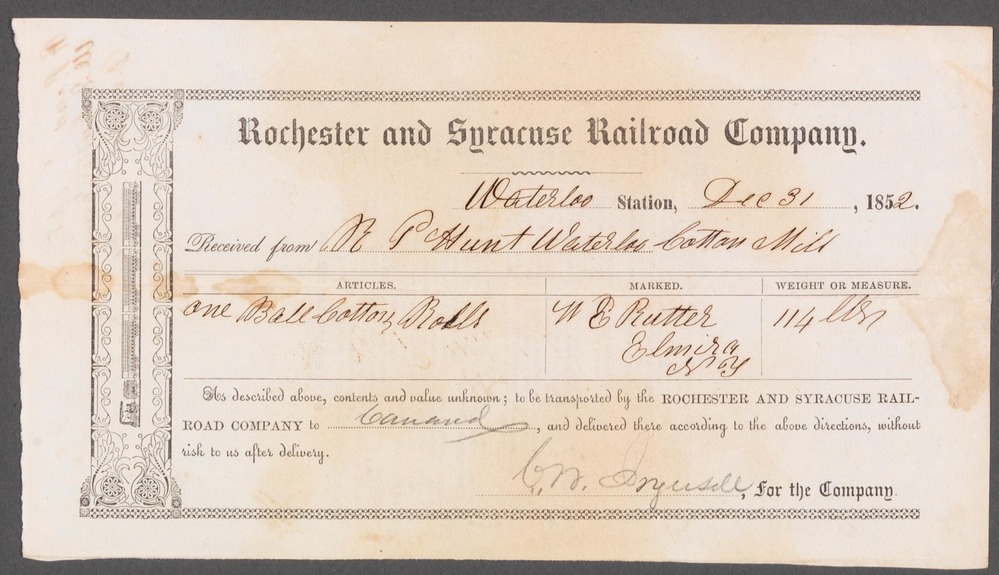 Rochester and Syracuse Railroad Company.
Waterloo Station, Dec 31, 1852.
Received from R P Hunt Waterloo Cotton Mill
ARTICLES. MARKED. WEIGHT OR MEASURE.
one Ball Cotton Rolls W E Rutter 114 lbs
Elmira
N Y
As described above, contents and value unknown; to be transported by the ROCHESTER AND SYRACUSE RAIL-
ROAD COMPANY to Canand, and delivered there according to the above directions, without
risk to us after delivery.
C. W. Ingersoll, For the Company.